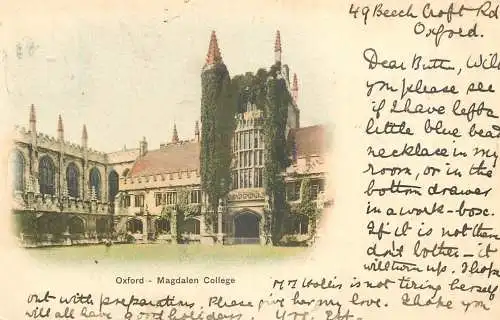 49 Beech Croft Rd
Oxford.
Dear Butn, Will
you please see
if I have left a
little blue bead
necklace in my
room, or in the
bottom drawer
in a work-box.
If it is not there
don't bother - it
will turn up. I hope
Oxford - Magdalen College
is not tiring herself
out with preparations, Please give her my love. I hope you
will all have good holidays.